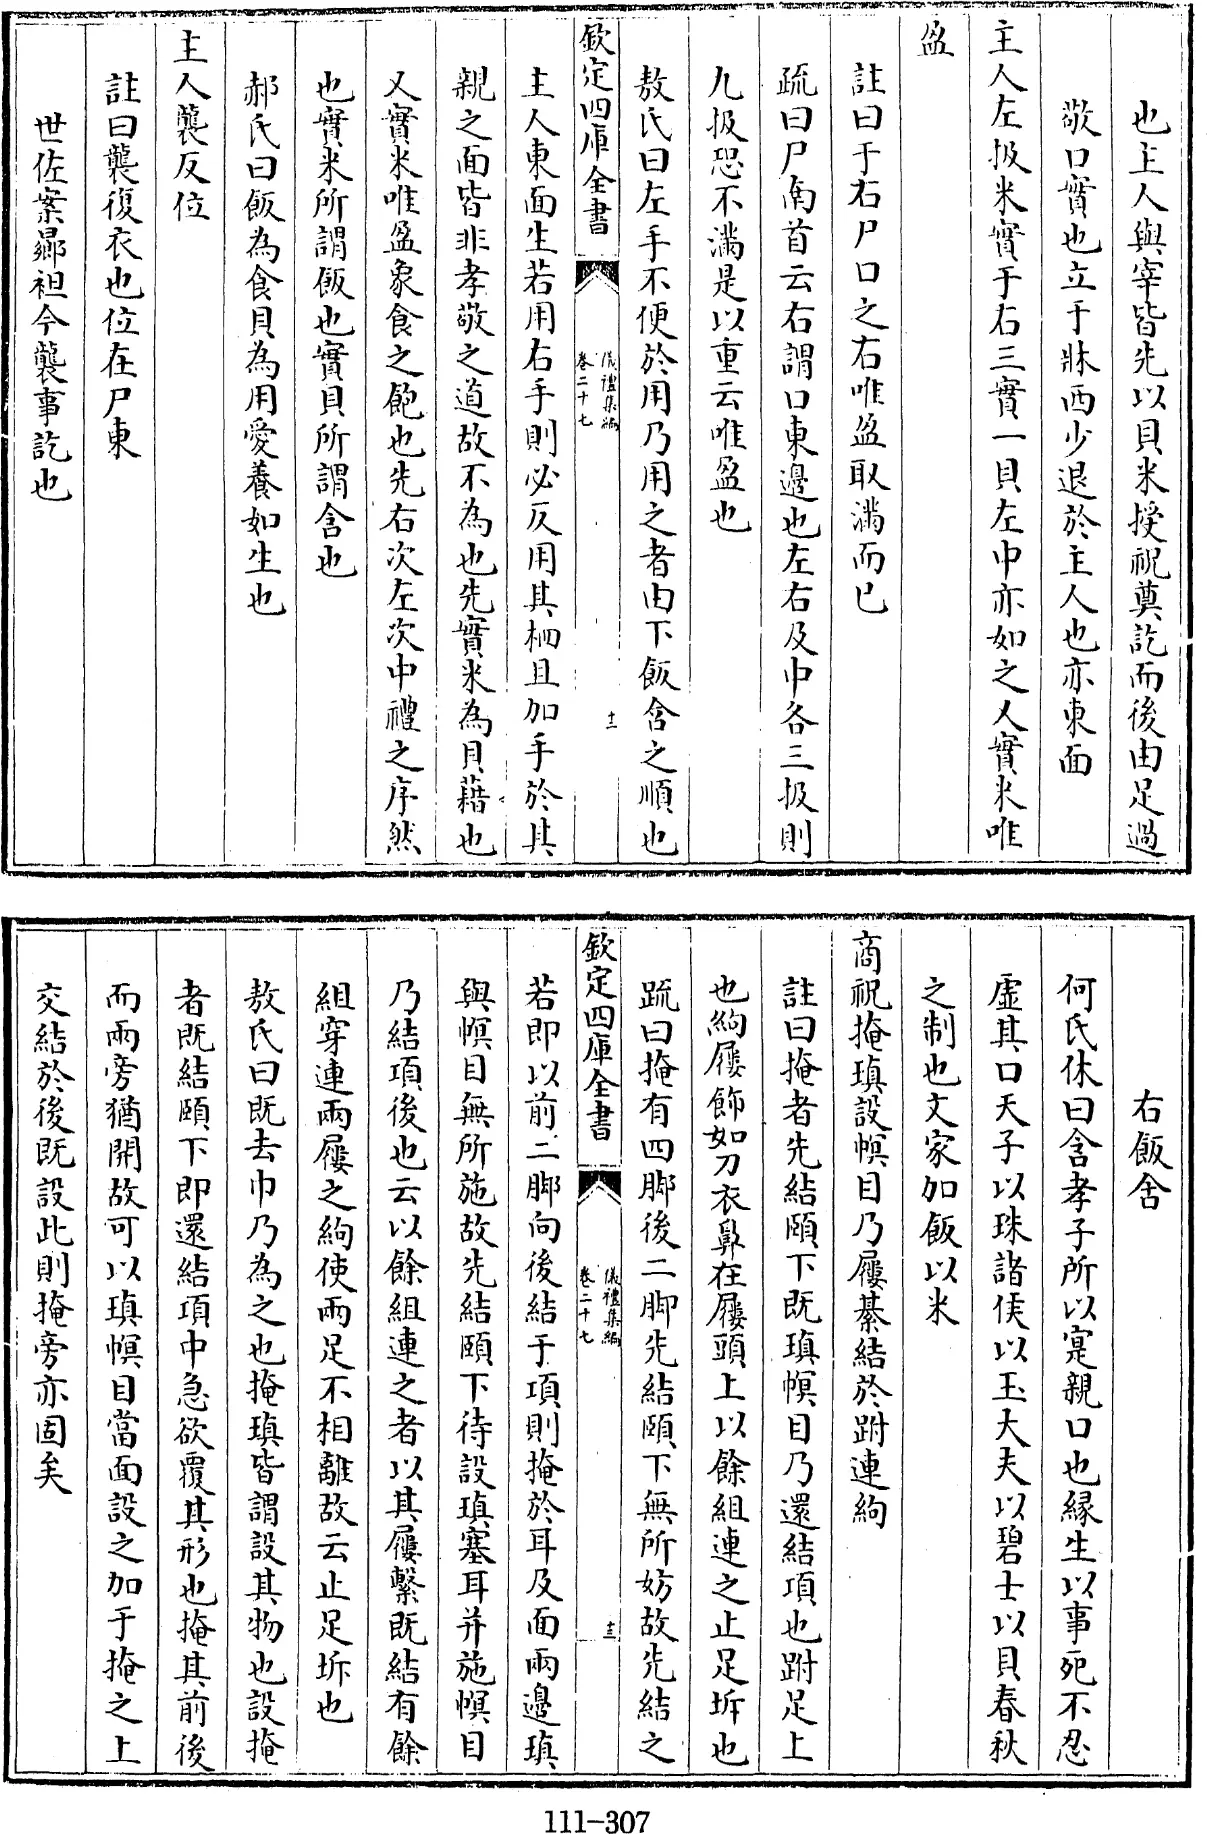 也主人與宰皆先以貝米授祝奠訖而後由足過
敵口實也立于牀西少退於主人也亦東面
主人左扱米實于右三實一貝左中亦如之又實米唯
盈
註曰于右尸口之右唯盈取滿而已
疏曰尸南首云右謂口東邊也左右及中各三扱則
九扱恐不滿是以重云唯盈也
敖氏曰左手不便於用乃用之者由下飯含之順也
欽定四庫全書
儀禮集編
卷二十七
十二
主人東面生若用右手則必反用其柶且加手於其
親之面皆非孝敬之道故不為也先實米為貝藉也
又實米唯盈象食之飽也先右次左次中禮之序然
也實米所謂飯也實貝所謂含也
郝氏曰飯為食貝為用愛養如生也
主人襲反位
註曰襲復衣也位在尸東
世佐案曏袒今襲事訖也
右飯含
何氏休曰含孝子所以寔親口也緣生以事死不忍
虛其口天子以珠諸侯以玉大夫以碧士以貝春秋
之制也文家加飯以米
商祝掩瑱設幎目乃屨綦結於跗連絇
註曰掩者先結頤下既瑱幎目乃還結項也跗足上
也絇屨飾如刀衣鼻在屨頭上以餘組連之止足坼也
疏曰掩有四脚後二脚先結頤下無所妨故先結之
欽定四庫全書
儀禮集編
卷二十七
十三
若即以前二脚向後結于項則掩於耳及面兩邊瑱
與幎目無所施故先結頤下待設瑱塞耳并施幎目
乃結項後也云以餘組連之者以其屨繫既結有餘
組穿連兩屨之絇使兩足不相離故云止足坼也
敖氏曰既去巾乃為之也掩瑱皆謂設其物也設掩
者既結頤下即還結項中急欲覆其形也掩其前後
而兩旁猶開故可以瑱幎目當面設之加于掩之上
交結於後既設此則掩旁亦固矣
111-307